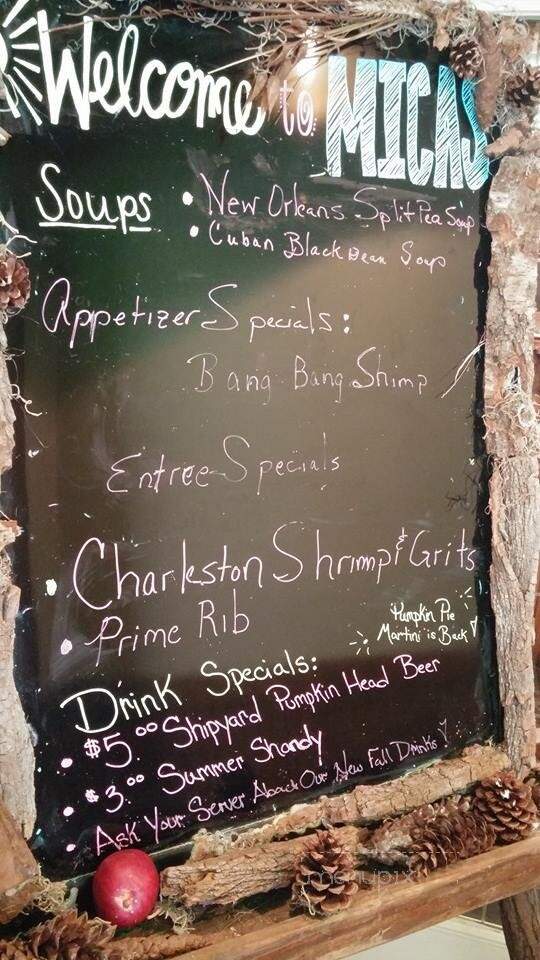 Welcome to MICAS
Soups • New Orleans Split Pea Soup
• Cuban Black Bean Soup
Appetizer Specials:
Bang Bang Shimp
Entree Specials
• Charleston Shrimp & Grits
• Prime Rib
Pumpkin Pie
Martini is Back!
Drink Specials:
• $5.00 Shipyard Pumpkin Head Beer
• $3.00 Summer Shandy
• Ask Your Server About Our New Fall Drinks!
menupix